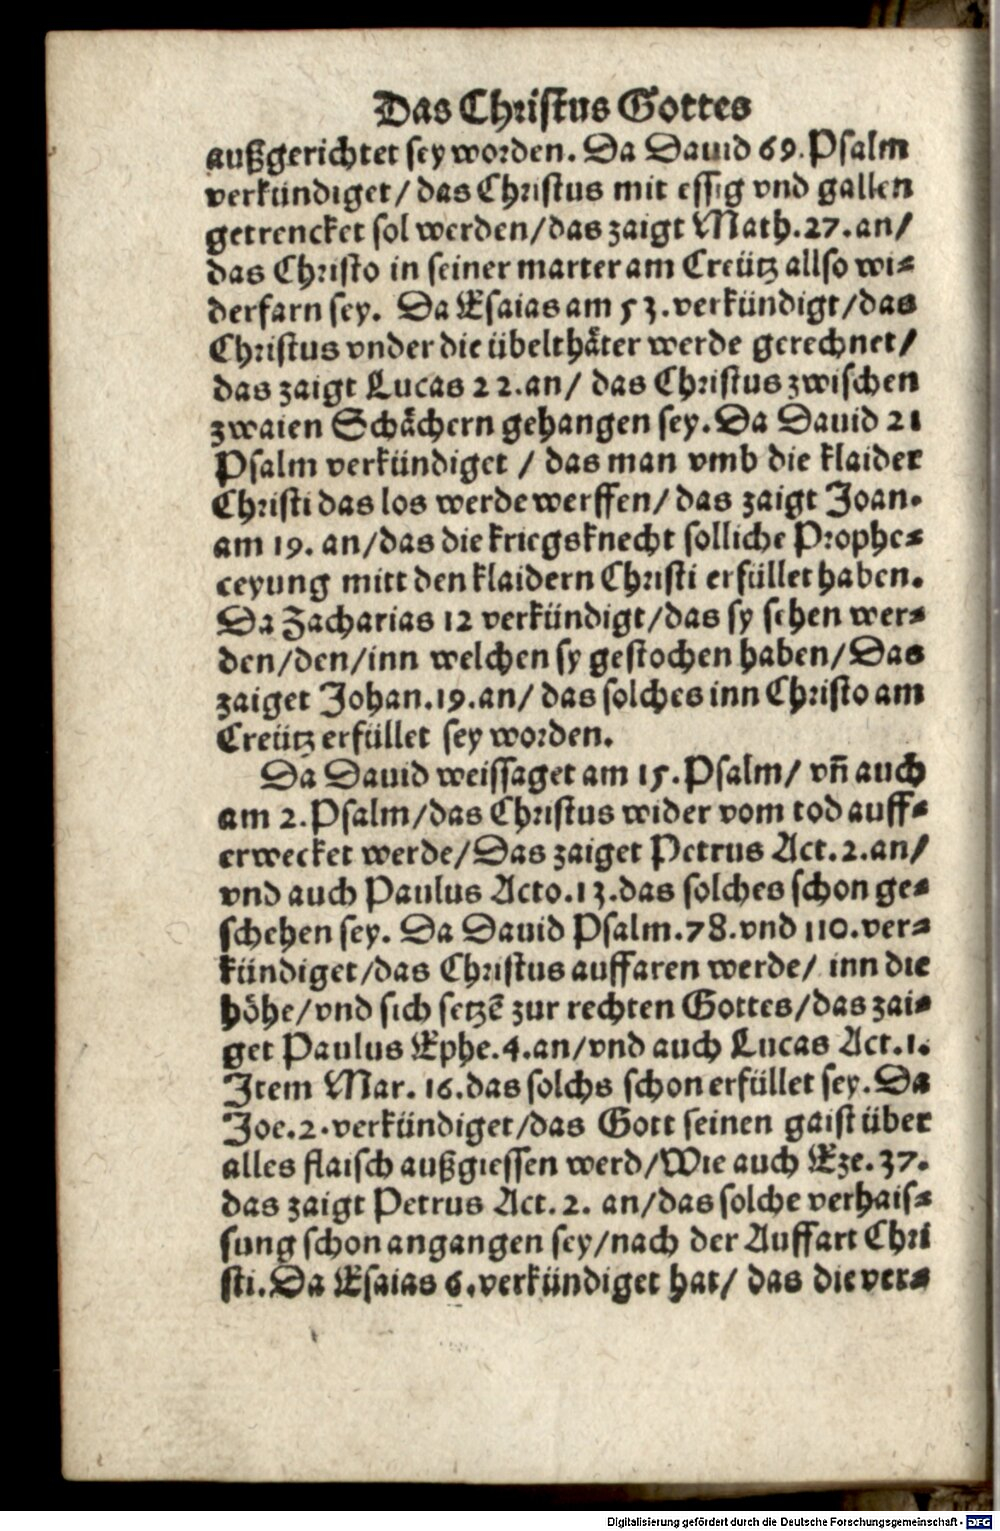 Das Christus Gottes
außgerichtet sey worden. Da Dauid 69. Psalm
verkündiget / das Christus mit essig vnd gallen
getrencket sol werden / das zaigt Math. 27. an /
das Christo in seiner marter am Creütz allso wi⸗
derfarn sey. Da Esaias am 53. verkündigt / das
Christus vnder die übelthäter werde gerechnet /
das zaigt Lucas 22. an / das Christus zwischen
zwaien Schächern gehangen sey. Da Dauid 21
Psalm verkündiget / das man vmb die klaider
Christi das los werde werffen / das zaigt Joan.
am 19. an / das die kriegsknecht solliche Prophe⸗
ceyung mitt den klaidern Christi erfüllet haben.
Da Zacharias 12 verkündigt / das sy sehen wer⸗
den / den / inn welchen sy gestochen haben / Das
zaiget Johan. 19. an / das solches inn Christo am
Creütz erfüllet sey worden.
Da Dauid weissaget am 15. Psalm / vñ auch
am 2. Psalm / das Christus wider vom tod auff⸗
erwecket werde / Das zaiget Petrus Act. 2. an /
vnd auch Paulus Acto. 13. das solches schon ge⸗
schehen sey. Da Dauid Psalm. 78. vnd 110. ver⸗
kündiget / das Christus auffaren werde / inn die
höhe / vnd sich setzẽ zur rechten Gottes / das zai⸗
get Paulus Ephe. 4. an / vnd auch Lucas Act. 1.
Item Mar. 16. das solchs schon erfüllet sey. Da
Joe. 2. verkündiget / das Gott seinen gaist über
alles flaisch außgiessen werd / Wie auch Eze. 37.
das zaigt Petrus Act. 2. an / das solche verhais⸗
sung schon angangen sey / nach der Auffart Chri
sti. Da Esaias 6. verkündiget hat / das die ver⸗
Digitalisierung gefördert durch die Deutsche Forschungsgemeinschaft - DFG